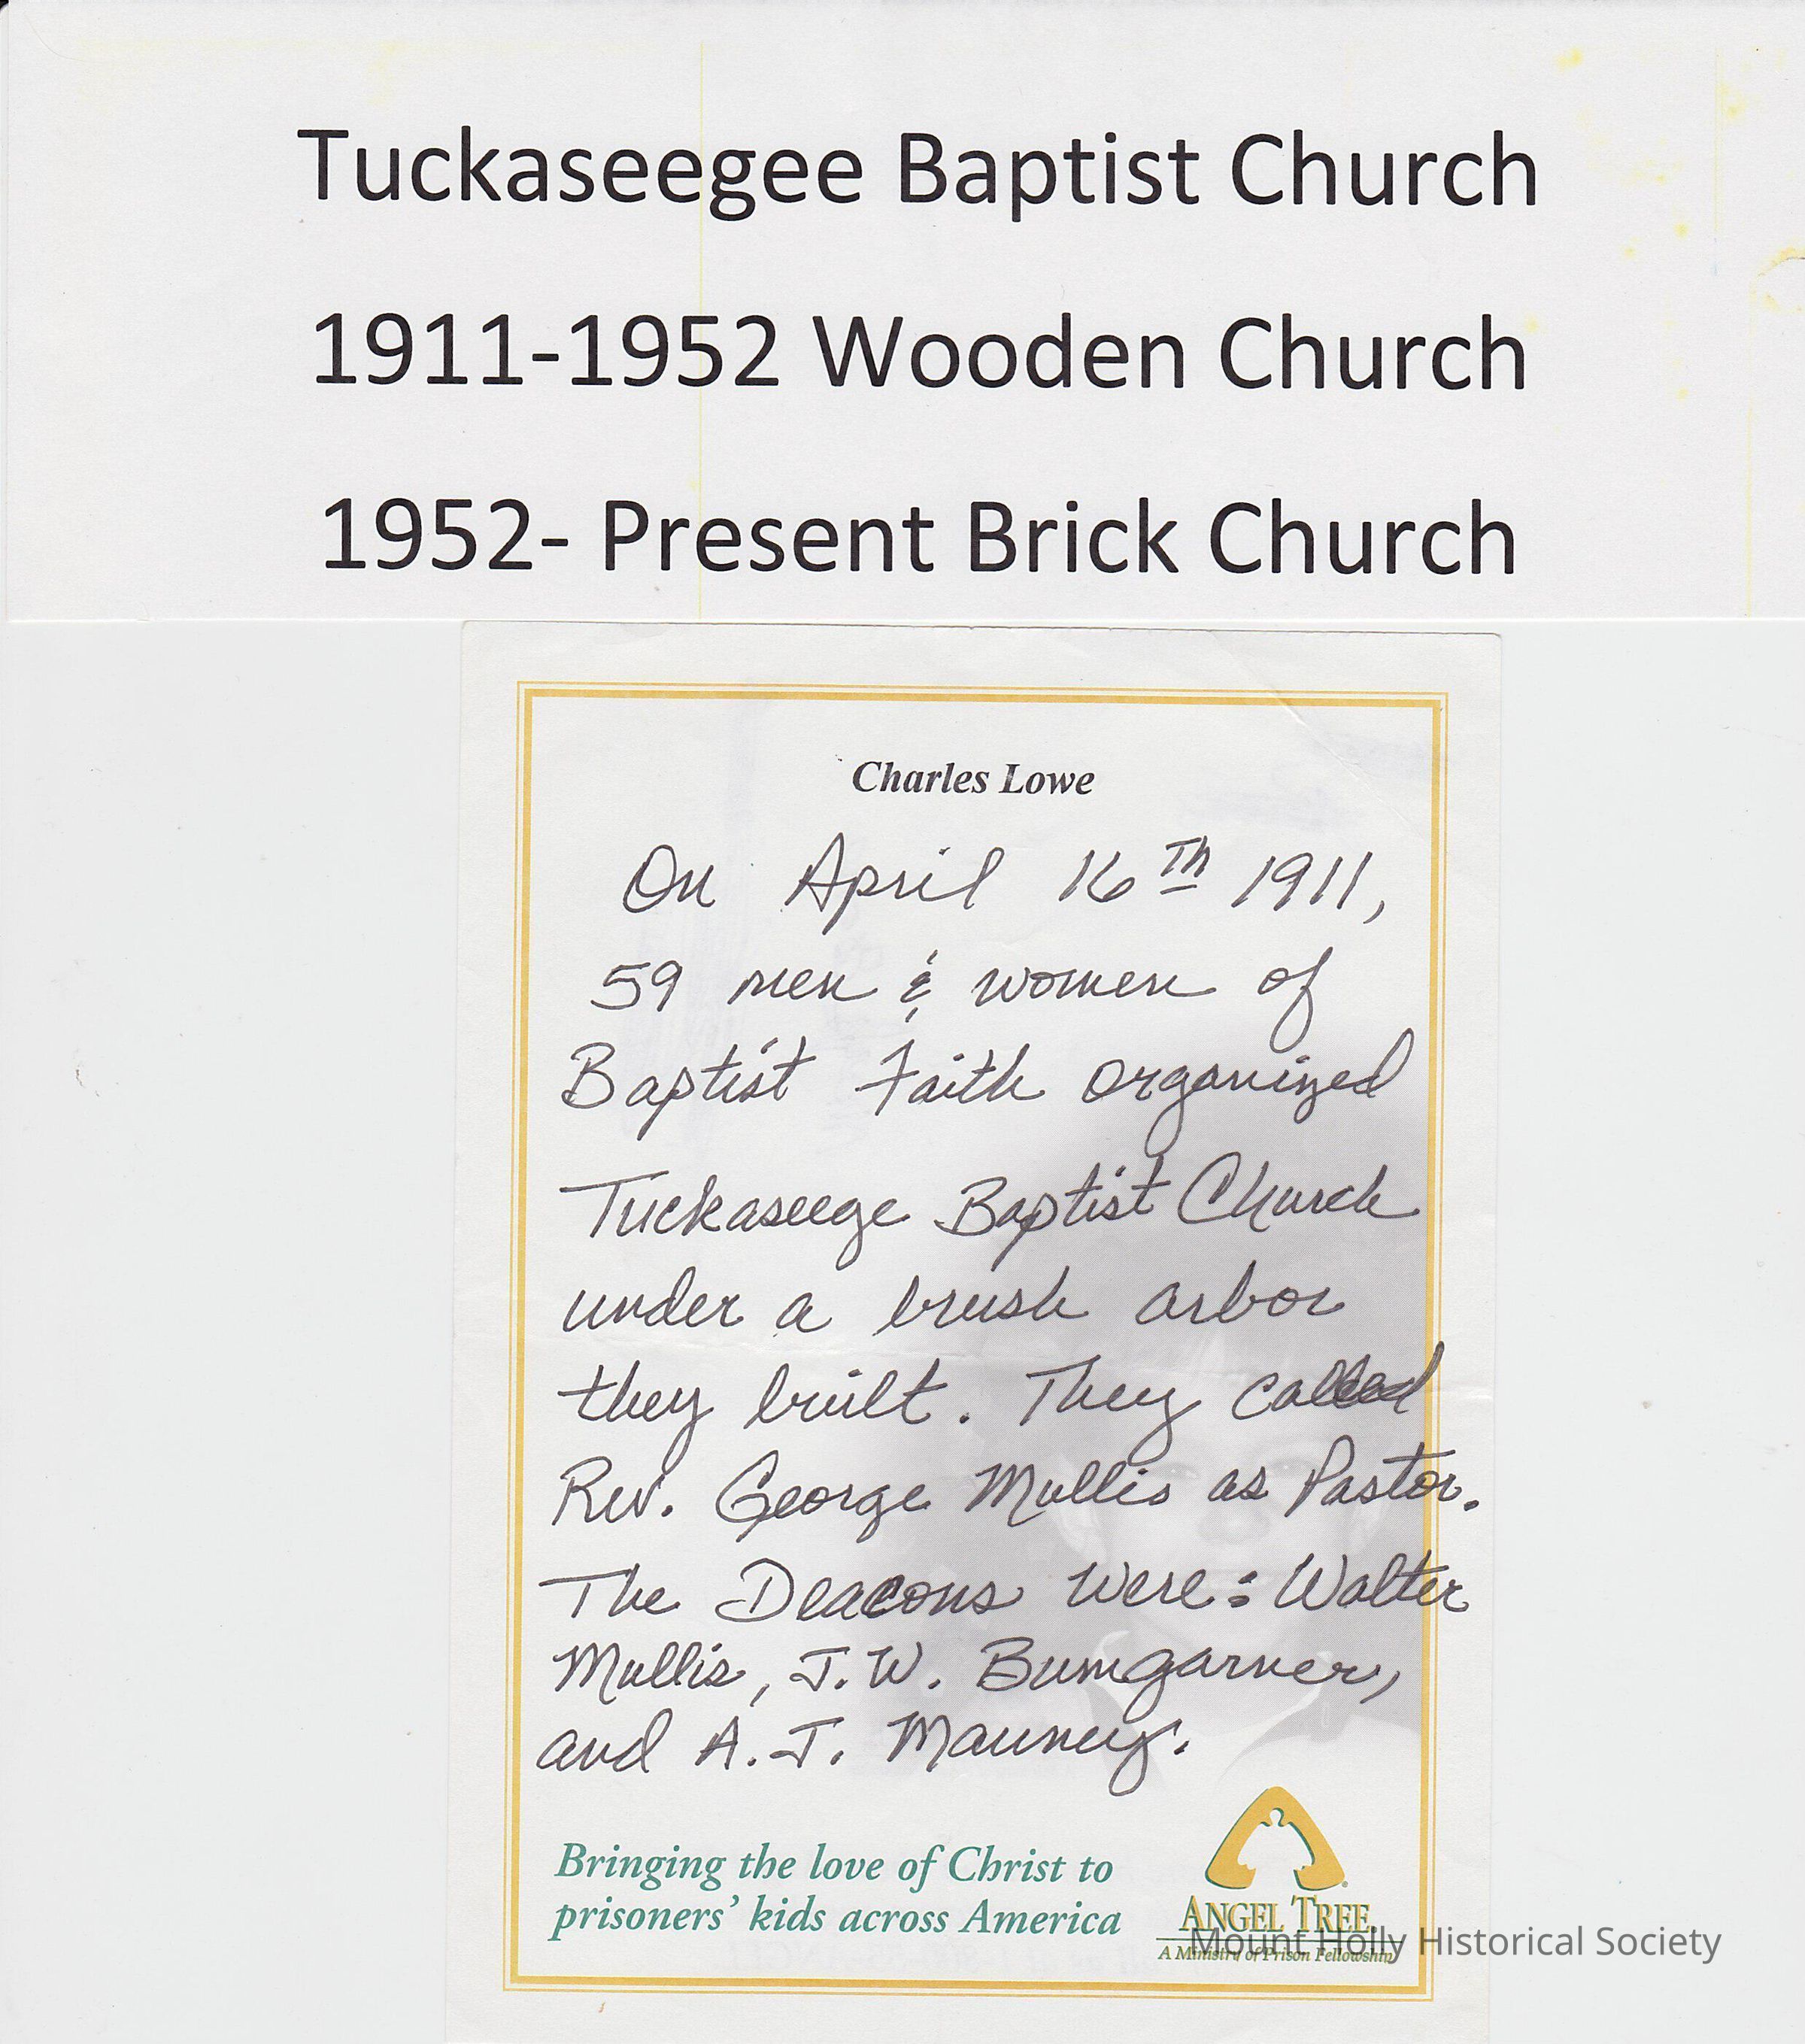 Tuckaseegee Baptist Church
1911-1952 Wooden Church
1952- Present Brick Church
Charles Lowe
On April 16th 1911,
59 men & women of
Baptist Faith organized
Tuckaseege Baptist Church
under a brush arbor
they built. They called
Rev. George Mullis as Pastor.
The Deacons were: Walter
Mullis, J.W. Bumgarner,
and A.J. Mauney.
Bringing the love of Christ to
prisoners' kids across America
ANGEL TREE
A Ministry of Prison Fellowship
Mount Holly Historical Society